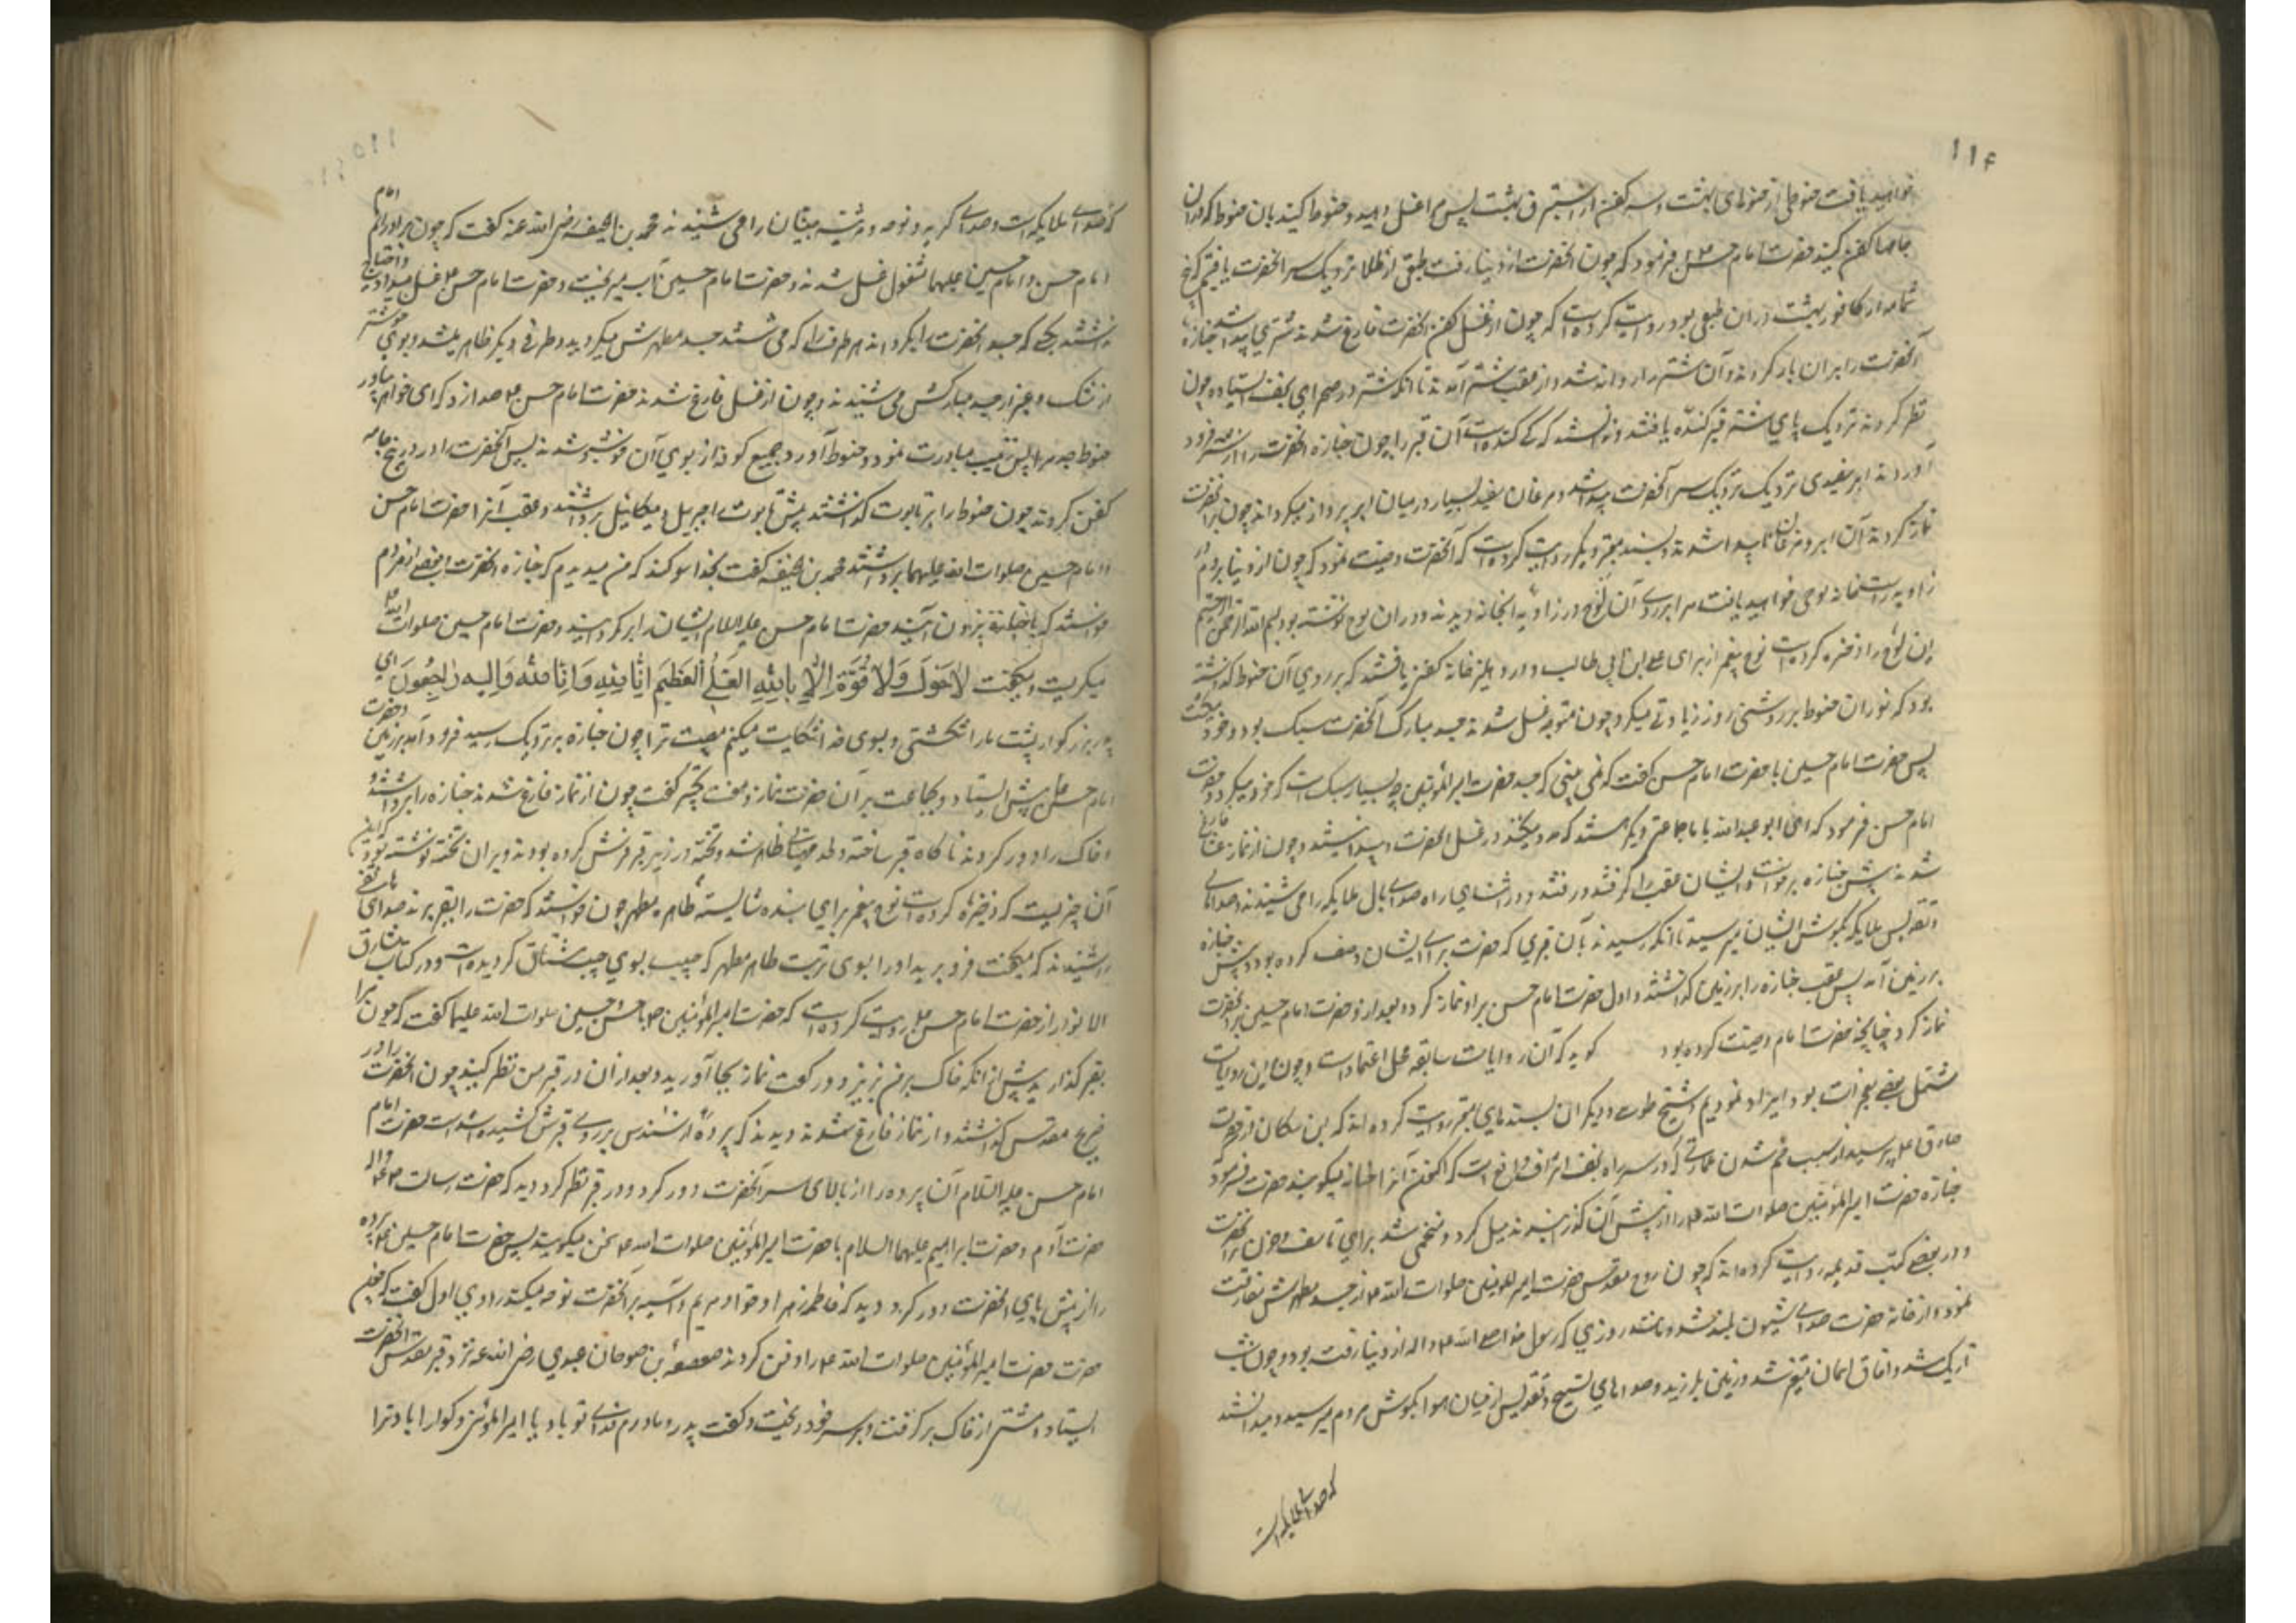 ۱۱۴
خواهید یافت حنوطی از حنوطهای بهشت و سه کفن از استبرق بهشت پس مرا غسل دهید و حنوط کنید بان حنوط که در ان
جامها کفن کنید حضرت امام حسن فرمود که چون انحضرت از دنیا رفت طبقی از طلا نزدیک سر انحضرت یافتیم که پنج
شمامه از کافور بهشت دران طبق بود و روایت کرده است که چون از غسل و کفن انحضرت فارغ شدند شتری پیدا شد جنازه
آنحضرت را بران بار کردند و آن شتر روانه شد و از عقب شتر آمدند تا انکه شتر در صحرای نجف ایستاد و چون
نظر کردند نزدیک پای شتر قبر کنده یافتند و ندانستند که کی کنده است آن قبر را چون جنازه انحضرت را از شتر فرود
آوردند ابر سفیدی نزدیک سر آنحضرت پیدا شد و مرغان سفید بسیار در میان ابر پرواز میکردند چون بر انحضرت
نماز کردند آن ابر و مرغان ناپیدا شدند و بسند معتبر دیگر روایت کرده است که آنحضرت وصیت نمود که چون از دنیا بروم در
زاویه راست خانه لوحی خواهید یافت مرا بر روی آن لوح در زاویه انخانه دیدند و در ان لوح نوشته بود بسم الله الرحمن الرحیم
این لوح را ذخیره کرده است نوح پیغمبر از برای علی ابن ابی طالب و در دهلیز خانه کفنی یافتند که بر روی آن حنوط گذاشته
بود که نور ان حنوط بر روشنی روز زیادتی میکرد چون متوجه غسل شدند جسد مبارک آنحضرت سبک بود و خود میکشت
پس حضرت امام حسین با حضرت امام حسن گفت که نمی بینی که جسد حضرت امیرالمؤمنین چه بسیار سبک است که خود میکردد حضرت
امام حسن فرمود که ای ابو عبدالله با ما جماعتی دیگر هستند که مدد میکنند در غسل انحضرت و چون از نماز خفتن فارغ
شدند پیش جنازه برخواست و ایشان عقب را گرفتند و رفتند و در اثنای راه صدای بال ملایکه را می شنیدند و صداهای
و تقدیس ملایکه بگوش ایشان میرسید تا انکه رسیدند بان قبری که حضرت برای ایشان وصف کرده بود و پیش جنازه
بر زمین آمد پس عقب جنازه را بر زمین گذاشتند و اول حضرت امام حسن بر او نماز کرد و بعد از او حضرت امام حسین بر انحضرت
نماز کرد چنانچه حضرت امام وصیت کرده بود گوید که آن روایات سابقه محل اعتماد است و چون این روایات
مشتمل بعضی معجزات بود ایراد نمودیم و شیخ طوسی و دیگران بسندهای معتبر روایت کرده اند که ابن مسکان از حضرت
صادق پرسید از سبب خم شدن عمارتی که در سر راه نجف اشرف واقع است که اکنون آنرا حنانه میگویند حضرت فرمود
جنازه حضرت امیرالمؤمنین صلوات الله را از پیش آن گذرانیدند میل کرد و منحنی شد برای تاسف و حزن بر انحضرت
و در بعضی کتب قدیمه روایت کرده اند که چون روح مقدس حضرت امیرالمومنین صلوات الله از جسد مطهرش مفارقت
نمود و از خانه حضرت صدای شیون بلند شد مانند روزی که رسول خدا صلی الله و اله از دنیا رفت بود و چون شب
تاریک شد و افاق اسمان متغیر شد و زمین بلرزید و صداهای تسبیح و تقدیس از میان هوا بگوش مردم میرسید و میدانستند
که صدای ملایکه است
۱۱۵
که صدای ملایکه است و صدای گریه و نوحه و مرثیه جنیان را می شنیدند محمد بن الحنیفه رضی الله عنه گفت که چون برادرانم امام
امام حسن و امام حسین علیهما مشغول غسل شدند و حضرت امام حسین آب میریخت و حضرت امام حسن غسل میداد و احتیاج
نداشتند بکسی که جسد انحضرت را بگرداند هر طرف را که می شستند جسد مطهرش میگردید و طرفی دیگر ظاهر میشد و بوی خوشتر
از مشک و عنبر از جسد مبارکش می شنیدند و چون از غسل فارغ شدند حضرت امام حسن صدا زد که ای خواهر بیاور
حنوط جدم را پس زینب مبادرت نمود و حنوط آورد و جمیع کوفه از بوی آن خوشبو شدند پس آنحضرت را در پنج جامه
کفن کردند چون حنوط را بر تابوت گذاشتند پیش تابوت را جبریل و میکائیل برداشتند و عقب آنرا حضرت امام حسن
و امام حسین صلوات الله علیهما برداشتند محمد بن حنیفه گفت بخدا سوگند که من میدیدم که جنازه انحضرت بعضی از مردم
خواستند که با جنازه بیرون آیند حضرت امام حسن علیه السلام ایشان را برگردانید و حضرت امام حسین صلوات الله
میگریست و میگفت لا حول ولا قوة الا بالله العلی العظیم انا لله و انا منه و الیه راجعون ای
پدر بزرگوار پشت ما را شکستی و بسوی خدا شکایت میکنم مصیبت ترا چون جنازه نزدیک رسید فرود آمد بر زمین و حضرت
امام حسن پیش ایستاد و بجماعت بر آن حضرت نماز و هفت تکبیر گفت چون از نماز فارغ شدند جنازه را برداشتند و
و خاک را دور کردند ناگاه قبر ساخته و لحد مهیائی ظاهر شد و تخته در زیر قبر فرش کرده بودند و بران تخته نوشته بود که این
آن چیزیست که ذخیره کرده است نوح پیغمبر برای بنده شایسته طاهر و مطهر چون خواستند که حضرت را بقبر برند صدای هاتفی
را شنیدند که میگفت فرو برید او را بسوی تربت طاهر مطهر که حبیب بسوی حبیب مشتاق گردیده است و در کتاب مشارق
الانوار از حضرت امام حسن روایت کرده است که حضرت امیرالمؤمنین با حسن و حسین صلوات الله علیهما گفت که چون مرا
بقبر گذارید پیش از انکه خاک بر من بریزید دو رکعت نماز بجا آورید و بعد از ان در قبر من نظر کنید چون انحضرت را در
ضریح مقدس گذاشتند و از نماز فارغ شدند دیدند که پرده از سندس بر روی قبرش کشیده شده است حضرت امام
امام حسن علیه السلام آن پرده را از بالای سر آنحضرت دور کرد و در قبر نظر کرد دید که حضرت رسالت و اله
حضرت آدم و حضرت ابراهیم علیهما السلام با حضرت امیرالمؤمنین صلوات الله سخن میگویند پس حضرت امام حسین پرده
را از پیش پای انحضرت دور کرد دید که فاطمه زهرا و حوا و مریم و آسیه بر انحضرت نوحه میکنند راوی اول گفت که چون
حضرت امیرالمؤمنین صلوات الله را دفن کردند صعصعه بن صوحان عبدی رضی الله عنه نزد قبر مقدس انحضرت
ایستاد و مشتی از خاک بر گرفت و بر سر خود ریخت و گفت پدر و مادرم فدای تو باد یا امیرالمؤمنین و گوارا باد ترا